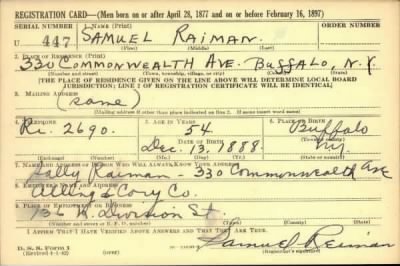 REGISTRATION CARD—(Men born on or after April 28, 1877 and on or before February 16, 1897)
SERIAL NUMBER 1. NAME (Print) ORDER NUMBER
U 447 SAMUEL RAIMAN.
(First) (Middle) (Last)
2. PLACE OF RESIDENCE (Print)
330 COMMONWEALTH AVE. BUFFALO, N.Y.
(Number and street) (Town, township, village, or city) (County) (State)
[THE PLACE OF RESIDENCE GIVEN ON THE LINE ABOVE WILL DETERMINE LOCAL BOARD
JURISDICTION; LINE 2 OF REGISTRATION CERTIFICATE WILL BE IDENTICAL]
3. MAILING ADDRESS
(same)
[Mailing address if other than place indicated on line 2. If same insert word same]
4. TELEPHONE 5. AGE IN YEARS 6. PLACE OF BIRTH
Ri. 2690. 54 Buffalo
DATE OF BIRTH (Town or county)
Dec. 13, 1888. NY.
(Exchange) (Number) (Mo.) (Day) (Yr.) (State or country)
7. NAME AND ADDRESS OF PERSON WHO WILL ALWAYS KNOW YOUR ADDRESS
Sally Raiman - 330 Commonwealth Ave
8. EMPLOYER'S NAME AND ADDRESS
Alling & Cory Co.
9. PLACE OF EMPLOYMENT OR BUSINESS
136 N. Division St.
(Number and street or R. F. D. number) (Town) (County) (State)
I AFFIRM THAT I HAVE VERIFIED ABOVE ANSWERS AND THAT THEY ARE TRUE.
D. S. S. Form 1
(Revised 4-1-42) (over) Samuel Raiman
(Registrant's signature)